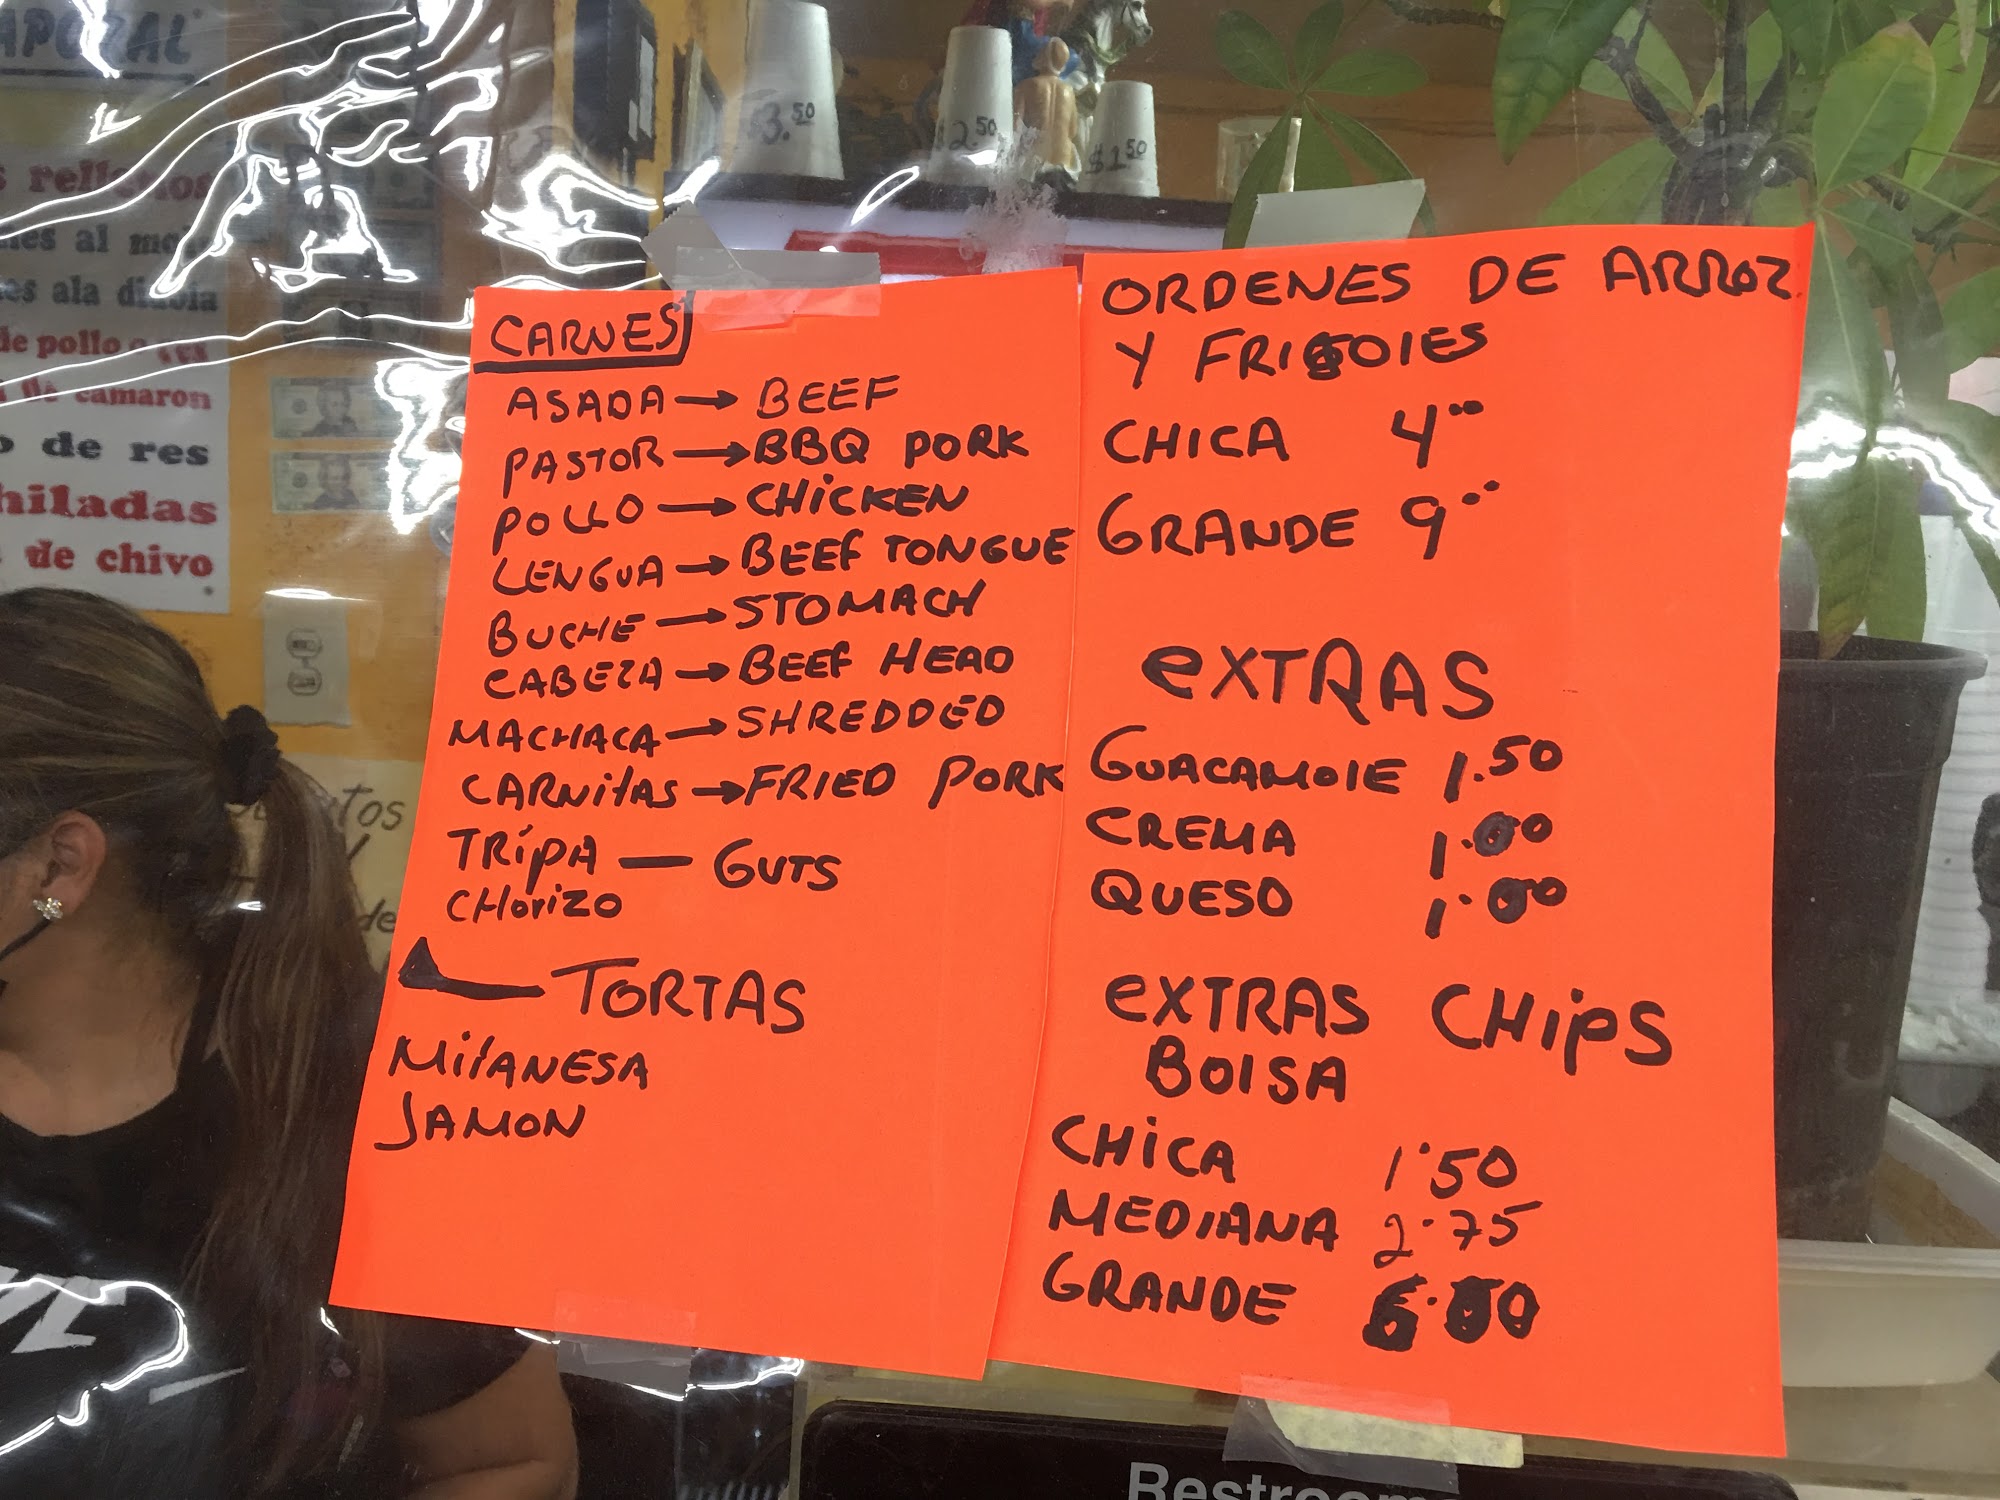 rellenos
al
ala diabla
de pollo o res
de camaron
de res
de chivo
$3.50
$2.50
$1.50
CARNES
ASADA → BEEF
PASTOR → BBQ PORK
POLLO → CHICKEN
LENGUA → BEEF TONGUE
BUCHE → STOMACH
CABEZA → BEEF HEAD
MACHACA → SHREDDED
CARNitAS → FRIED PORK
TRípA — GUTS
CHorizo
TORTAS
MilANESA
JAMON
ORDENES DE ARROZ
Y FRIGOlES
CHICA 4⁰⁰
GRANDE 9⁰⁰
eXTRAS
GUACAMOlE 1.50
CREMA 1.00
QUESO 1.00
eXTRAS CHipS
BOlSA
CHiCA 1.50
MEDIANA 2.75
GRANDE 6.00